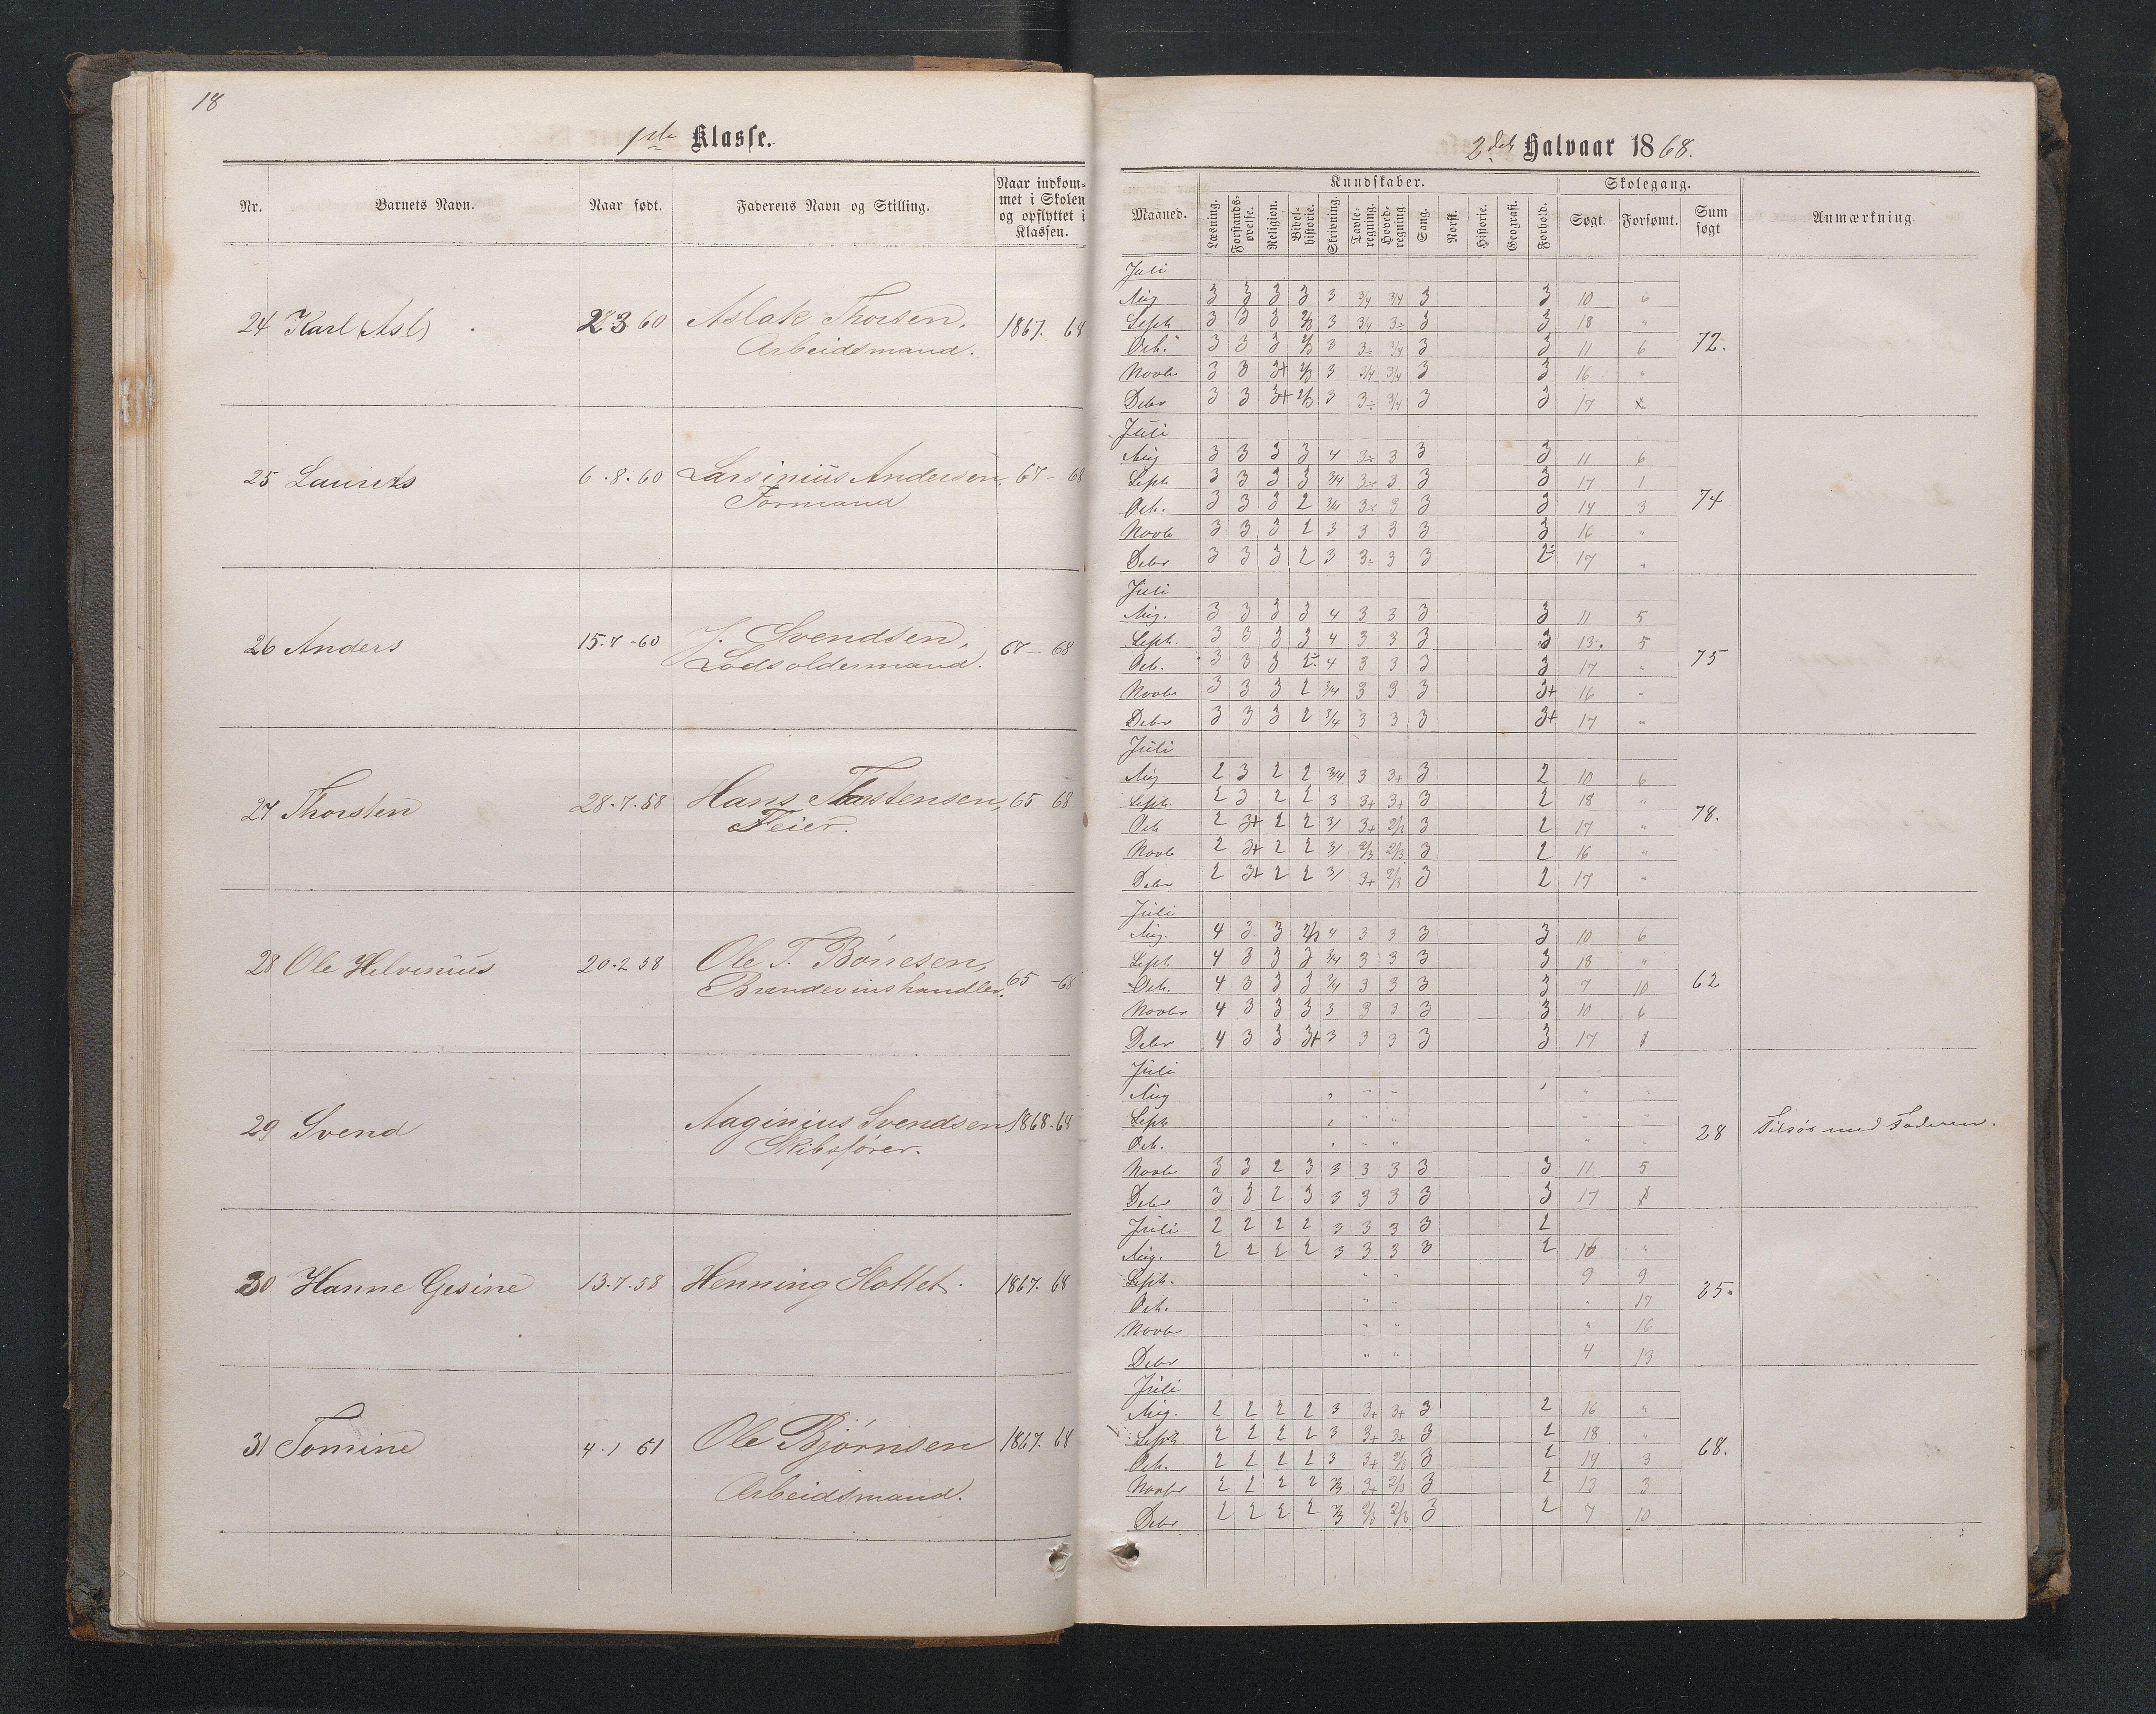 18
1ste Klasse.
Nr. Barnets Navn. Naar født. Faderens Navn og Stilling. Naar indkommet i Skolen og opflyttet i Klassen.
24 Karl (Asl) 28 3. 60 Aslak Thorsen, 1867. 68
Arbeidsmand.
25 Laurits 6.8.60 Larsinius Andersen, 67- 68
Formand
26 Anders 15.7-60 J. Svendsen, 67- 68
Lodsoldermand.
27 Thorsten 28.7.58 Hans Thostensen, 65 68
Feier.
28 Ole Helvinius 20.2 58 Ole T. Bönesen, 65 -68
Brændevinshandler.
29 Svend Aaginius Svendsen 1868. 64
Skibsfører.
30 Hanne Gesine 13.7.58 Henning Slottet. 1867. 68
31 Tomine 4.1 61 Ole Bjørnsen 1867. 68
Arbeidsmand.
2det Halvaar 1868.
Maaned. Kundskaber. Skolegang. Sum søgt Anmærkning
Læsning. Forstandsøvelse. Religion. Bibelhistorie. Skrivning. Tavleregning. Hovedregning. Sang. Norsk. Historie. Geografi. Forhold. Søgt. Forsømt.
Juli
Aug 3 3 3 3 3 3/4 3/4 3 3 10 6
Septb 3 3 3 2/3 3 3/4 3÷ 3 3 18 "
Octb. 3 3 3 2/3 3 3÷ 3/4 3 3 11 6 72.
Novbr 3 3 3+ 2/3 3 3/4 3/4 3 3 16 "
Debr 3 3 3+ 2/3 3 3÷ 3/4 3 3 17
Juli
Aug 3 3 3 3 4 3÷ 3 3 3 11 6
Septb 3 3 3 3 3/4 3÷ 3 3 3 17 1
Octb. 3 3 3 2 3/4 3÷ 3 3 3 14 3 74
Novbr 3 3 3 2 3 3 3 3 3 16 "
Debr 3 3 3 2 3 3÷ 3 3 2÷ 17 "
Juli
Aug. 3 3 3 3 4 3 3 3 3 11 5
Septb. 3 3 3 3 4 3 3 3 3 13 5
Octb. 3 3 3 2÷ 4 3 3 3 3 17 " 75
Novbr 3 3 3 2 3/4 3 3 3 3+ 16 "
Debr 3 3 3 2 3/4 3 3 3 3+ 17 "
Juli
Aug 2 3 2 2 3/4 3 3+ 3 2 10 6
Septb. 2 3 2 2 3 3+ 3+ 3 2 18 "
Octb 2 3+ 2 2 3/ 3+ 2/3 3 2 17 " 78.
Novbr 2 3+ 2 2 3/ 2/3 2/3 3 2 16 "
Debr 2 3+ 2 2 3/ 3+ 2/3 3 2 17 "
Juli
Aug. 4 3 3 2/3 4 3 3 3 3 10 6
Septb. 4 3 3 3 3/4 3 3 3 3 18 "
Octb. 4 3 3 3 3/4 3 3 3 3 7 10 62
Novbr 4 3 3 3 3 3 3 3 3 10 6
Debr 4 3 3 3+ 3 3 3 3 3 17
Juli
Aug " "
Septb " "
Octb. " " 28 Tilsøs med Faderen.
Novbr 3 3 2 3 3 3 3 3 3 11 5
Debr 3 3 2 3 3 3 3 3 3 17
Juli 2 2 2 2 3 3 3 3 2
Aug. 2 2 2 2 3 3 3 3 2 16 "
Septb. " " 9 9
Octb. " " " 17 25.
Novbr " " " 16
Debr " " 4 13
Juli
Aug. 2 2 2 2 3 3+ 3+ 3 2 16 "
Septb. 2 2 2 2 3 3+ 3+ 3 2 18 "
Octb. 2 2 2 2 3 3+ 2/3 3 2 14 3 68.
Novbr 2 2 2 2 2/3 3+ 2/3 3 2 13 3
Debr 2 2 2 2 2/3 2/3 2/3 3 2 7 10